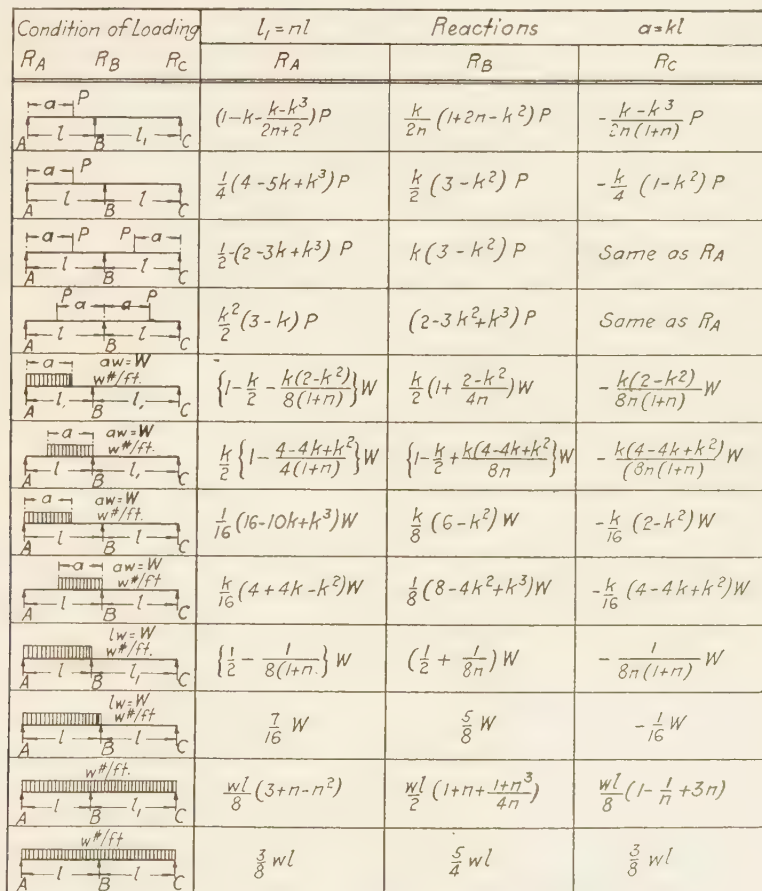 Condition of Loading l₁ = nl Reactions a = kl
R_A R_B R_C R_A R_B R_C
a P
A l B l₁ C
(1-k-\frac{k-k^3}{2n+2})P \frac{k}{2n}(1+2n-k^2)P -\frac{k-k^3}{2n(1+n)}P
a P
A l B l C
\frac{1}{4}(4-5k+k^3)P \frac{k}{2}(3-k^2)P -\frac{k}{4}(1-k^2)P
a P P a
A l B l C
\frac{1}{2}(2-3k+k^3)P k(3-k^2)P Same as R_A
P a a P
A l B l C
\frac{k^2}{2}(3-k)P (2-3k^2+k^3)P Same as R_A
a aw=W
w#/ft.
A l B l₁ C
{1-\frac{k}{2}-\frac{k(2-k^2)}{8(1+n)}}W \frac{k}{2}(1+\frac{2-k^2}{4n})W -\frac{k(2-k^2)}{8n(1+n)}W
a aw=W
w#/ft.
A l B l₁ C
\frac{k}{2}{1-\frac{4-4k+k^2}{4(1+n)}}W {1-\frac{k}{2}+\frac{k(4-4k+k^2}{8n}}W -\frac{k(4-4k+k^2)}{(8n(1+n)}W
a aw=W
w#/ft.
A l B l C
\frac{1}{16}(16-10k+k^3)W \frac{k}{8}(6-k^2)W -\frac{k}{16}(2-k^2)W
a aw=W
w#/ft.
A l B l C
\frac{k}{16}(4+4k-k^2)W \frac{1}{8}(8-4k^2+k^3)W -\frac{k}{16}(4-4k+k^2)W
lw=W
w#/ft.
A l B l₁ C
{\frac{1}{2}-\frac{1}{8(1+n.}}W (\frac{1}{2}+\frac{1}{8n})W -\frac{1}{8n(1+n)}W
lw=W
w#/ft
A l B l C
\frac{7}{16}W \frac{5}{8}W -\frac{1}{16}W
w#/ft.
A l B l₁ C
\frac{wl}{8}(3+n-n^2) \frac{wl}{2}(1+n+\frac{1+n^3}{4n}) \frac{wl}{8}(1-\frac{1}{n}+3n)
w#/ft
A l B l C
\frac{3}{8}wl \frac{5}{4}wl \frac{3}{8}wl